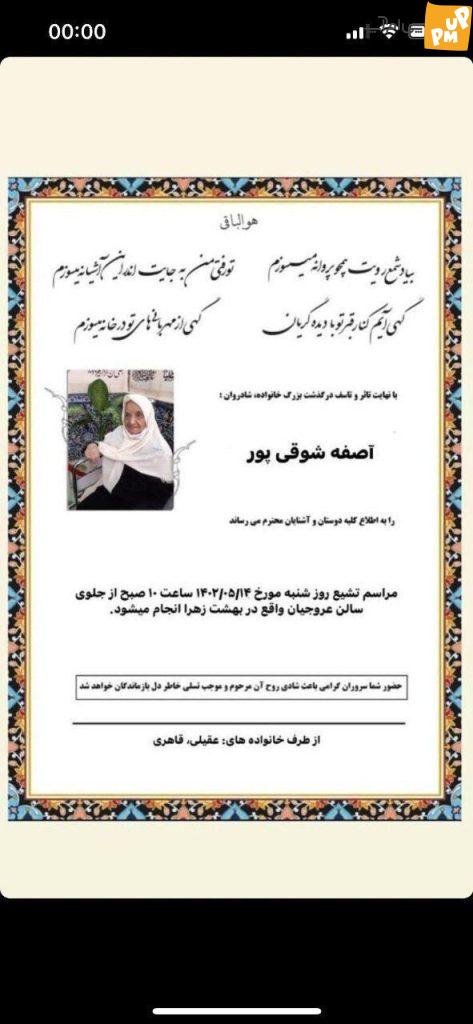 00:00
UP
PM
هوالباقی
بیاد شمع رویت همچو پروانه میسوزم
تو رفتی من به جایت اندر این آشیانه میسوزم
گهی آیم کنار قبر تو با دیده گریان
گهی از مهربانیهای تو در خانه میسوزم
با نهایت تاثر و تاسف درگذشت بزرگ خانواده، شادروان :
آصفه شوقی پور
را به اطلاع کلیه دوستان و آشنایان محترم می رساند
مراسم تشیع روز شنبه مورخ ۱۴۰۲/۰۵/۱۴ ساعت ۱۰ صبح از جلوی
سالن عروجیان واقع در بهشت زهرا انجام میشود.
حضور شما سروران گرامی باعث شادی روح آن مرحوم و موجب تسلی خاطر دل بازماندگان خواهد شد
از طرف خانواده های: عقیلی، قاهری